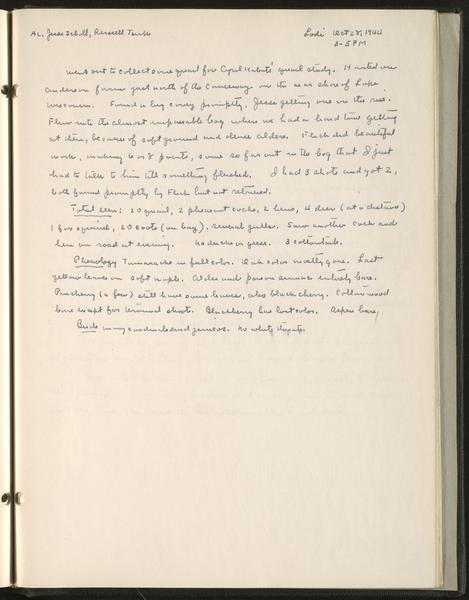 AL, Jess Scholl, Russell Tuck Lodi Oct 28, 1944
2-5 PM
Went out to collect some quail for Cyril Kabat's quail study. Hunted on
Anderson farm just north of the Causeway on the near shore of Lake
Wisconsin. Found a big covey promptly, Jesse getting one on the rise.
Flew into the almost impassable bog where we had a hard time getting
at them, because of soft ground and dense alders. Flick did beautiful
work, making 6 or 8 points, some so far out in the bog that I just
had to talk to him till something flushed. I had 3 shots and got 2,
both found promptly by Flick but not retrieved.
Total seen: 20 quail, 2 pheasant cocks, 2 hens, 4 deer (at a distance)
1 fox squirrel, 20 coots (on bay), several gulls. Saw another cock and
hen on road at evening. No ducks or geese. 3 cottontails.
Phenology Tamaracks in full color. Oak color mostly gone. Last
yellow leaves on soft maple. Alder and poison sumac entirely bare.
Pincherry (a few) still have some leaves, also black cherry. Cottonwood
bare except for terminal shoots. Blackberry has lost color. Aspen bare,
Birds many cardinals and juncos. No white throats.